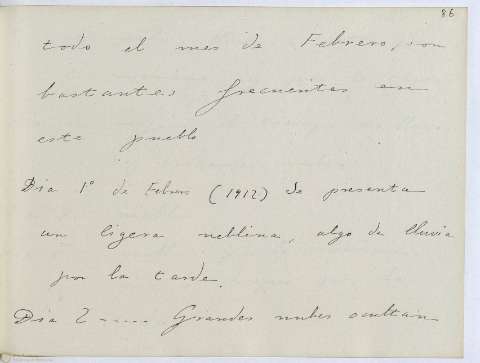 86
todo el mes de Febrero, son
bastantes frecuentes en
este pueblo
Dia 1º de Febrero (1912) Se presenta
un ligera neblina, algo de lluvia
por la tarde.
Dia 2 ---- Grandes nubes ocultan